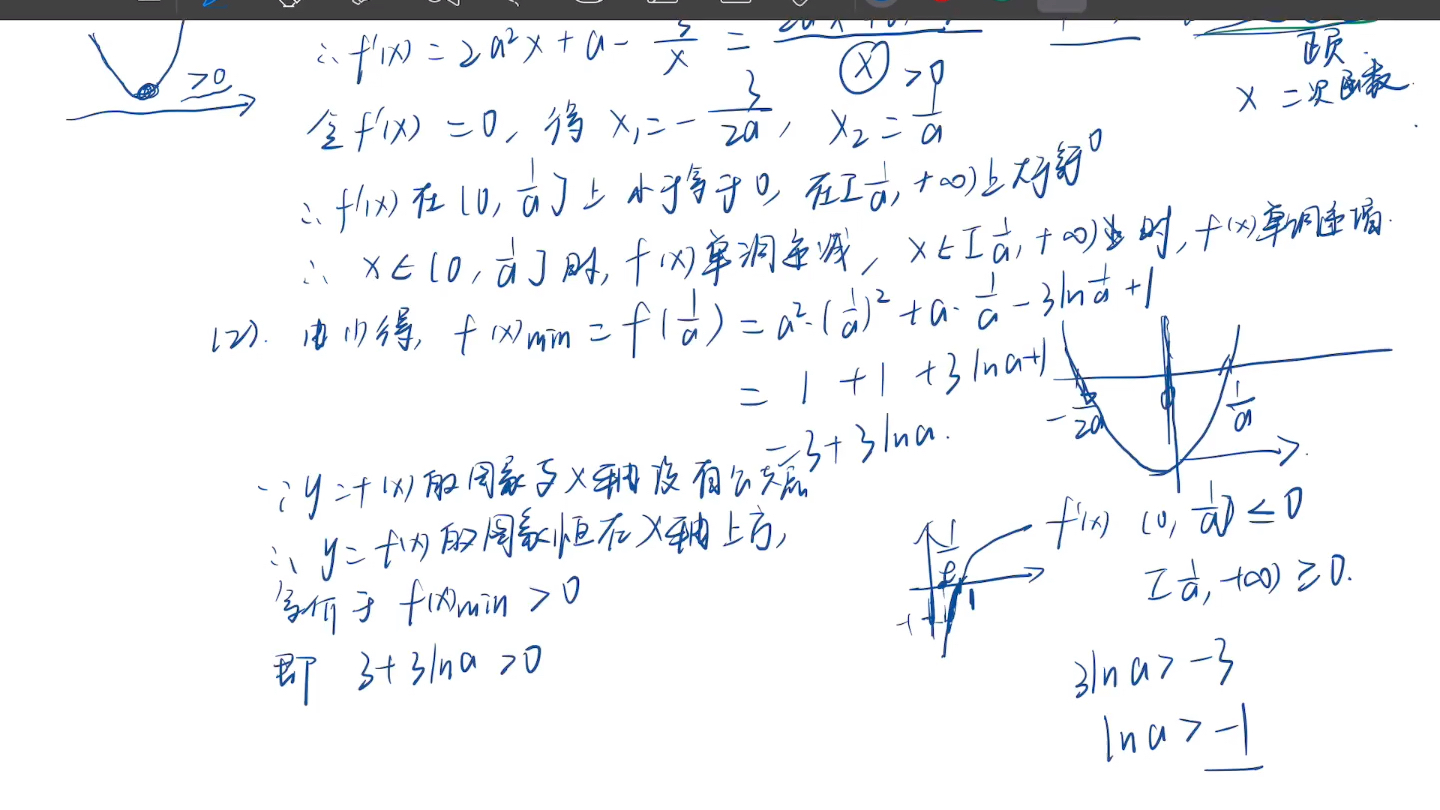 ∴ f'(x) = 2a²x + a - 3/x =
x > 0
>0
页
x 二次函数
令 f'(x) = 0, 得 x₁ = - 3/2a, x₂ = 1/a
∴ f'(x) 在 (0, 1/a] 上 小于等于 0, 在 [1/a, +∞) 上 大于等于 0
∴ x ∈ (0, 1/a] 时, f(x) 单调递减, x ∈ [1/a, +∞) 时, f(x) 单调递增.
(2). 由 (1) 得, f(x)min = f(1/a) = a²·(1/a)² + a·1/a - 3ln 1/a + 1
= 1 + 1 + 3lna + 1
= 3 + 3lna.
∵ y = f(x) 的图象与 x 轴没有公共点
∴ y = f(x) 的图象恒在 x 轴上方,
等价于 f(x)min > 0
即 3 + 3lna > 0
- 3/2a 0 1/a
f'(x) (0, 1/a] ≤ 0
[1/a, +∞) ≥ 0.
1/e 1
-1
3lna > -3
lna > -1